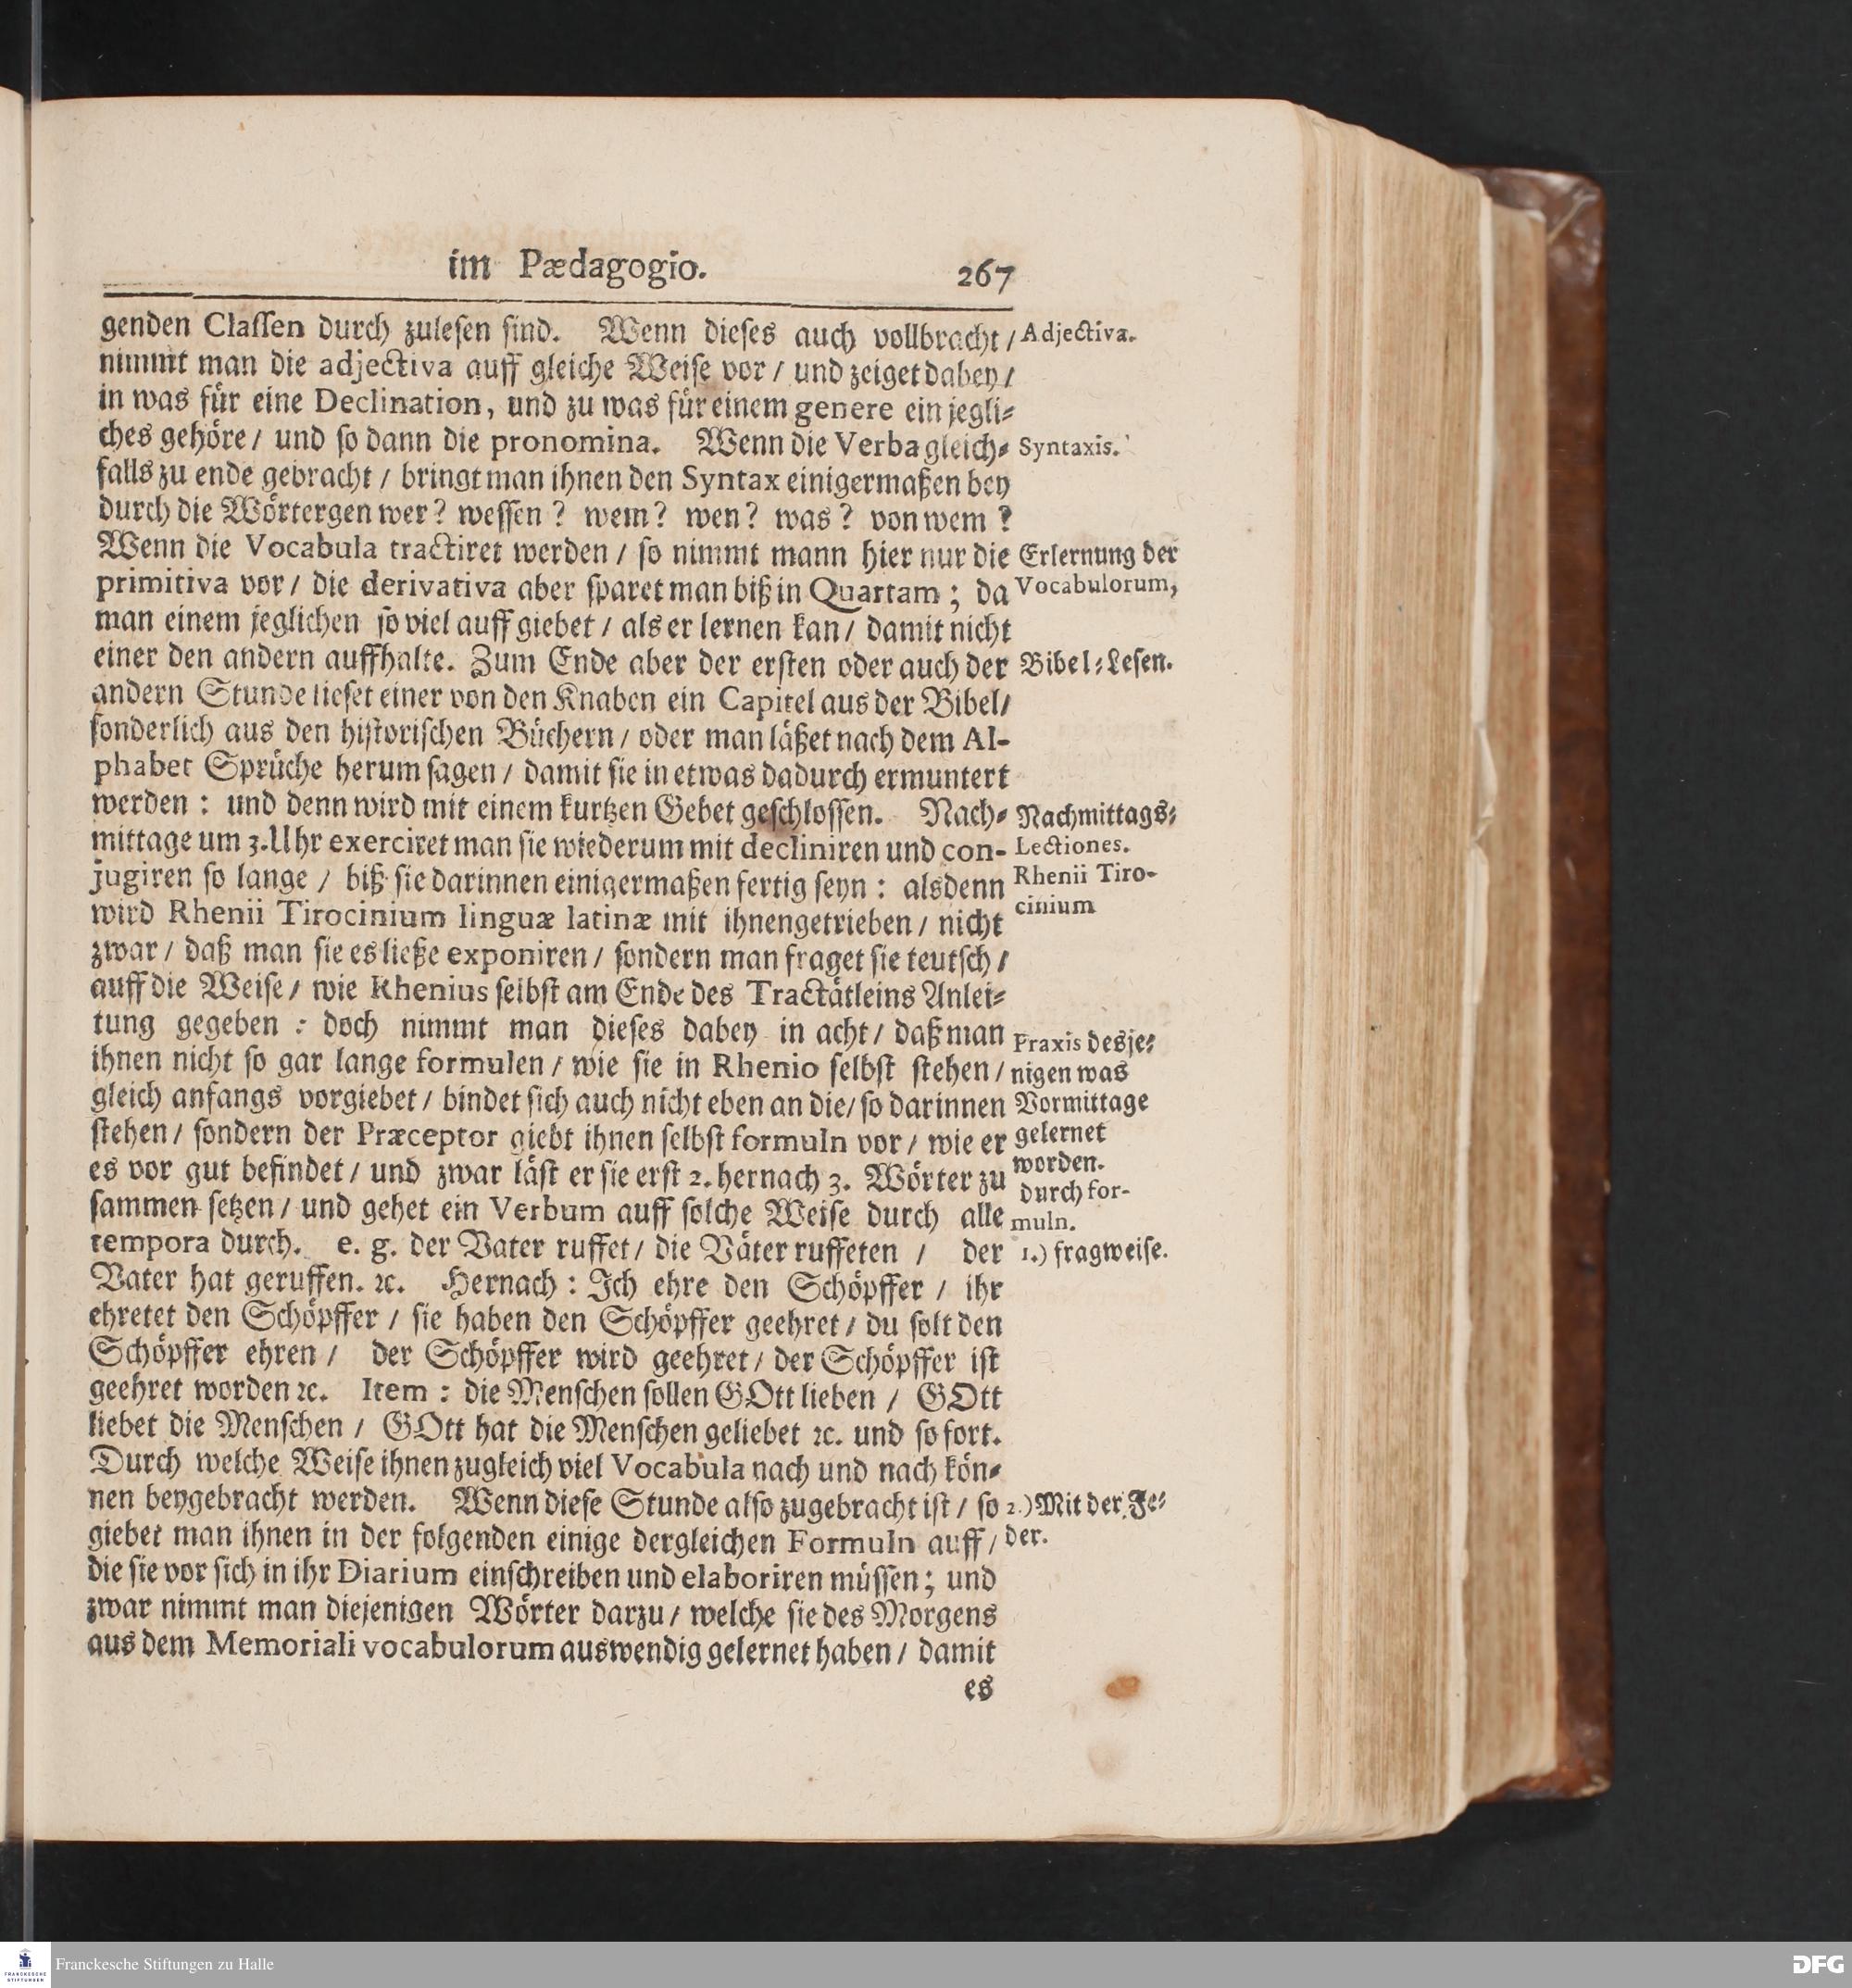 im Pædagogio. 267
genden Claſſen durch zuleſen ſind. Wenn dieſes auch vollbracht /
nimmt man die adjectiva auff gleiche Weiſe vor / und zeiget dabey /
in was für eine Declination, und zu was für einem genere ein jegli⸗
ches gehöre / und ſo dann die pronomina. Wenn die Verba gleich⸗
falls zu ende gebracht / bringt man ihnen den Syntax einigermaßen bey
durch die Wörtergen wer? weſſen? wem? wen? was? von wem?
Wenn die Vocabula tractiret werden / ſo nimmt mann hier nur die
primitiva vor / die derivativa aber ſparet man biß in Quartam; da
man einem jeglichen ſo viel auff giebet / als er lernen kan / damit nicht
einer den andern auffhalte. Zum Ende aber der erſten oder auch der
andern Stunde lieſet einer von den Knaben ein Capitel aus der Bibel /
ſonderlich aus den hiſtoriſchen Büchern / oder man läßet nach dem Al-
phabet Sprüche herum ſagen / damit ſie in etwas dadurch ermuntert
werden: und denn wird mit einem kurtzen Gebet geſchloſſen. Nach⸗
mittage um 3. Uhr exerciret man ſie wiederum mit decliniren und con-
jugiren ſo lange / biß ſie darinnen einigermaßen fertig ſeyn: alsdenn
wird Rhenii Tirocinium linguæ latinæ mit ihnengetrieben / nicht
zwar / daß man ſie es ließe exponiren / ſondern man fraget ſie teutſch /
auff die Weiſe / wie Rhenius ſelbſt am Ende des Tractätleins Anlei⸗
tung gegeben: doch nimmt man dieſes dabey in acht / daß man
ihnen nicht ſo gar lange formulen / wie ſie in Rhenio ſelbſt ſtehen /
gleich anfangs vorgiebet / bindet ſich auch nicht eben an die / ſo darinnen
ſtehen / ſondern der Præceptor giebt ihnen ſelbſt formuln vor / wie er
es vor gut befindet / und zwar läſt er ſie erſt 2. hernach 3. Wörter zu
ſammen ſetzen / und gehet ein Verbum auff ſolche Weiſe durch alle
tempora durch. e. g. der Vater ruffet / die Väter ruffeten / der
Vater hat geruffen. ꝛc. Hernach: Ich ehre den Schöpffer / ihr
ehretet den Schöpffer / ſie haben den Schöpffer geehret / du ſolt den
Schöpffer ehren / der Schöpffer wird geehret / der Schöpffer iſt
geehret worden ꝛc. Item: die Menſchen ſollen GOtt lieben / GOtt
liebet die Menſchen / GOtt hat die Menſchen geliebet ꝛc. und ſo fort.
Durch welche Weiſe ihnen zugleich viel Vocabula nach und nach kön⸗
nen beygebracht werden. Wenn dieſe Stunde alſo zugebracht iſt / ſo
giebet man ihnen in der folgenden einige dergleichen Formuln auff /
die ſie vor ſich in ihr Diarium einſchreiben und elaboriren müſſen; und
zwar nimmt man diejenigen Wörter darzu / welche ſie des Morgens
aus dem Memoriali vocabulorum auswendig gelernet haben / damit
es
Adjectiva.
Syntaxis.
Erlernung der
Vocabulorum,
Bibel⸗Leſen.
Nachmittags⸗
Lectiones.
Rhenii Tiro-
cinium
Praxis desje⸗
nigen was
Vormittage
gelernet
worden.
durch for-
muln.
1.) fragweiſe.
2.) Mit der Fe⸗
der.
FRANCKESCHE
STIFTUNGEN
Franckesche Stiftungen zu Halle
DFG